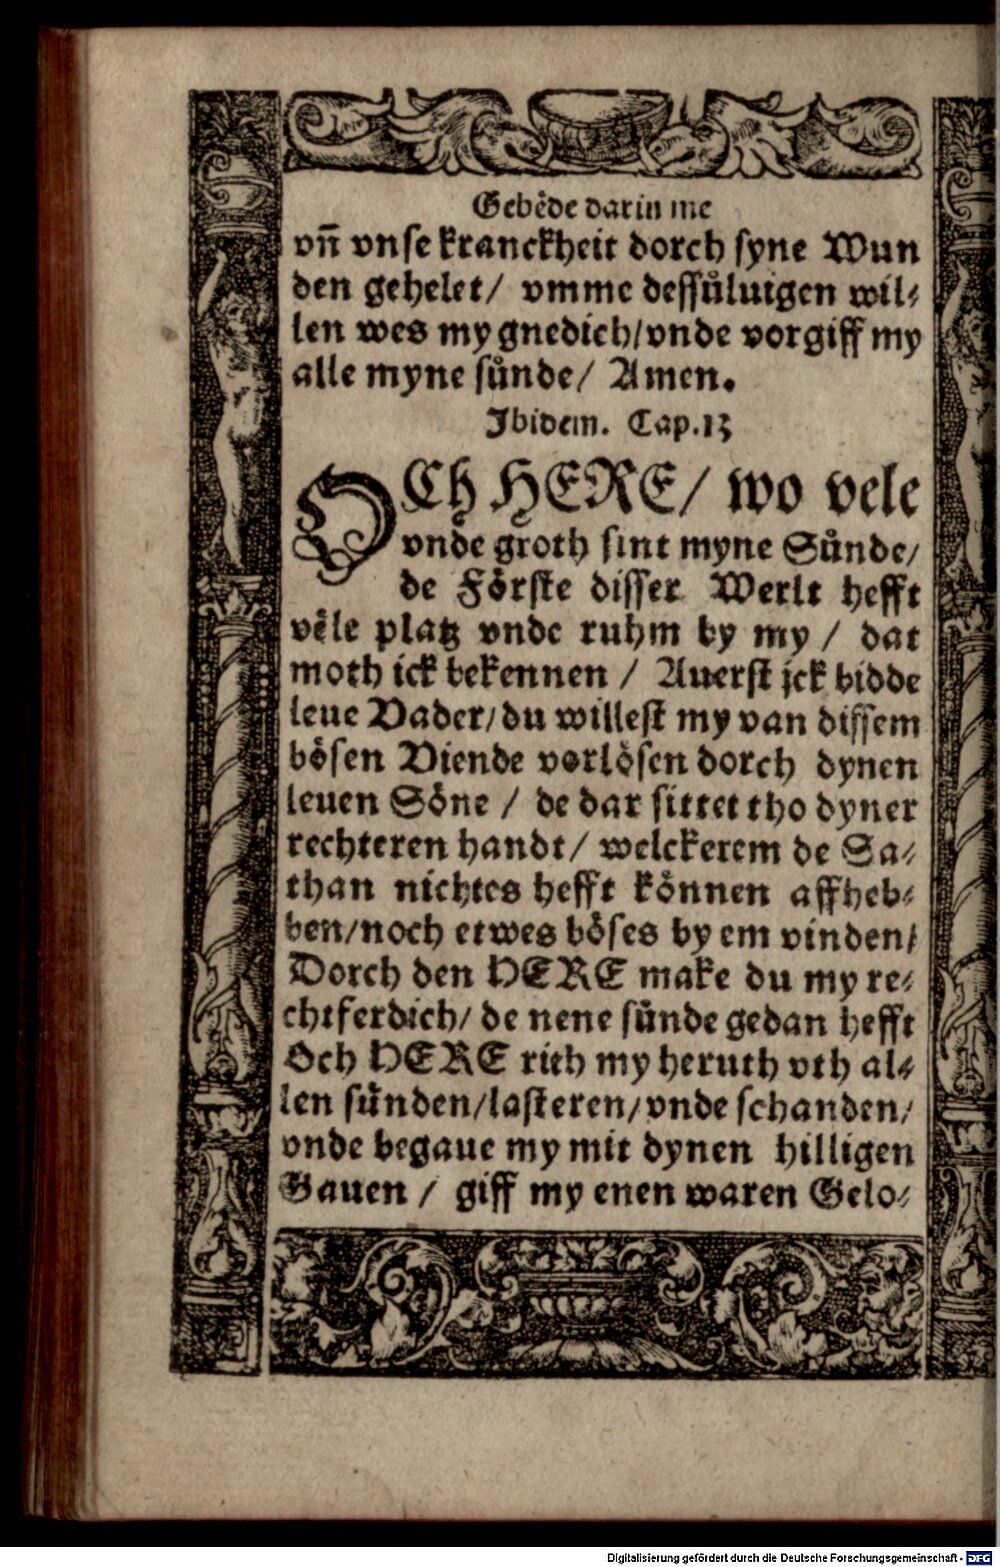 Gebẽde darin me
vñ vnse kranckheit dorch syne Wun
den gehelet/ vmme dessůluigen wil⸗
len wes my gnedich/vnde vorgiff my
alle myne sůnde/ Amen.
Ibidem. Cap.13
OCh HERE/ wo vele
vnde groth sint myne Sůnde/
de Főrste disser Werlt hefft
vẽle platz vnde ruhm by my / dat
moth ick bekennen / Auerst jck bidde
leue Vader/du willest my van dissem
bősen Viende vorlősen dorch dynen
leuen Sőne / de dar sittet tho dyner
rechteren handt/ welckerem de Sa⸗
than nichtes hefft kőnnen affheb⸗
ben/noch etwes bőses by em vinden/
Dorch den HERE make du my re⸗
chtferdich/ de nene sůnde gedan hefft
Och HERE rith my heruth vth al⸗
len sůnden/lasteren/vnde schanden/
vnde begaue my mit dynen hilligen
Gauen / giff my enen waren Gelo⸗
Digitalisierung gefördert durch die Deutsche Forschungsgemeinschaft - DFG